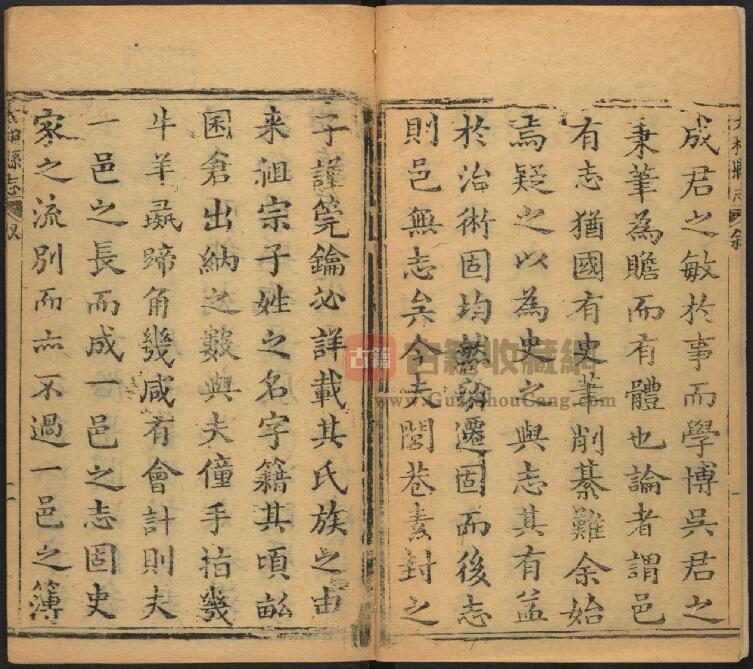 成君之敏於事而學博吳君之
秉筆為贍而有體也論者謂邑
有志猶國有史筆削綦難余始
焉疑之以為史之與志其有益
於治術固均然遷固而後志
則邑無志矣今夫閭巷素封之
子謹筦鑰必詳載其氏族之由
来祖宗子姓之名字籍其頃畝
囷倉出納之數與夫僮手指幾
牛羊蹏角幾咸有會計則夫
一邑之長而成一邑之志固史
家之流別而亦不過一邑之簿
古籍收藏網
www.GujiShouCang.com
古籍